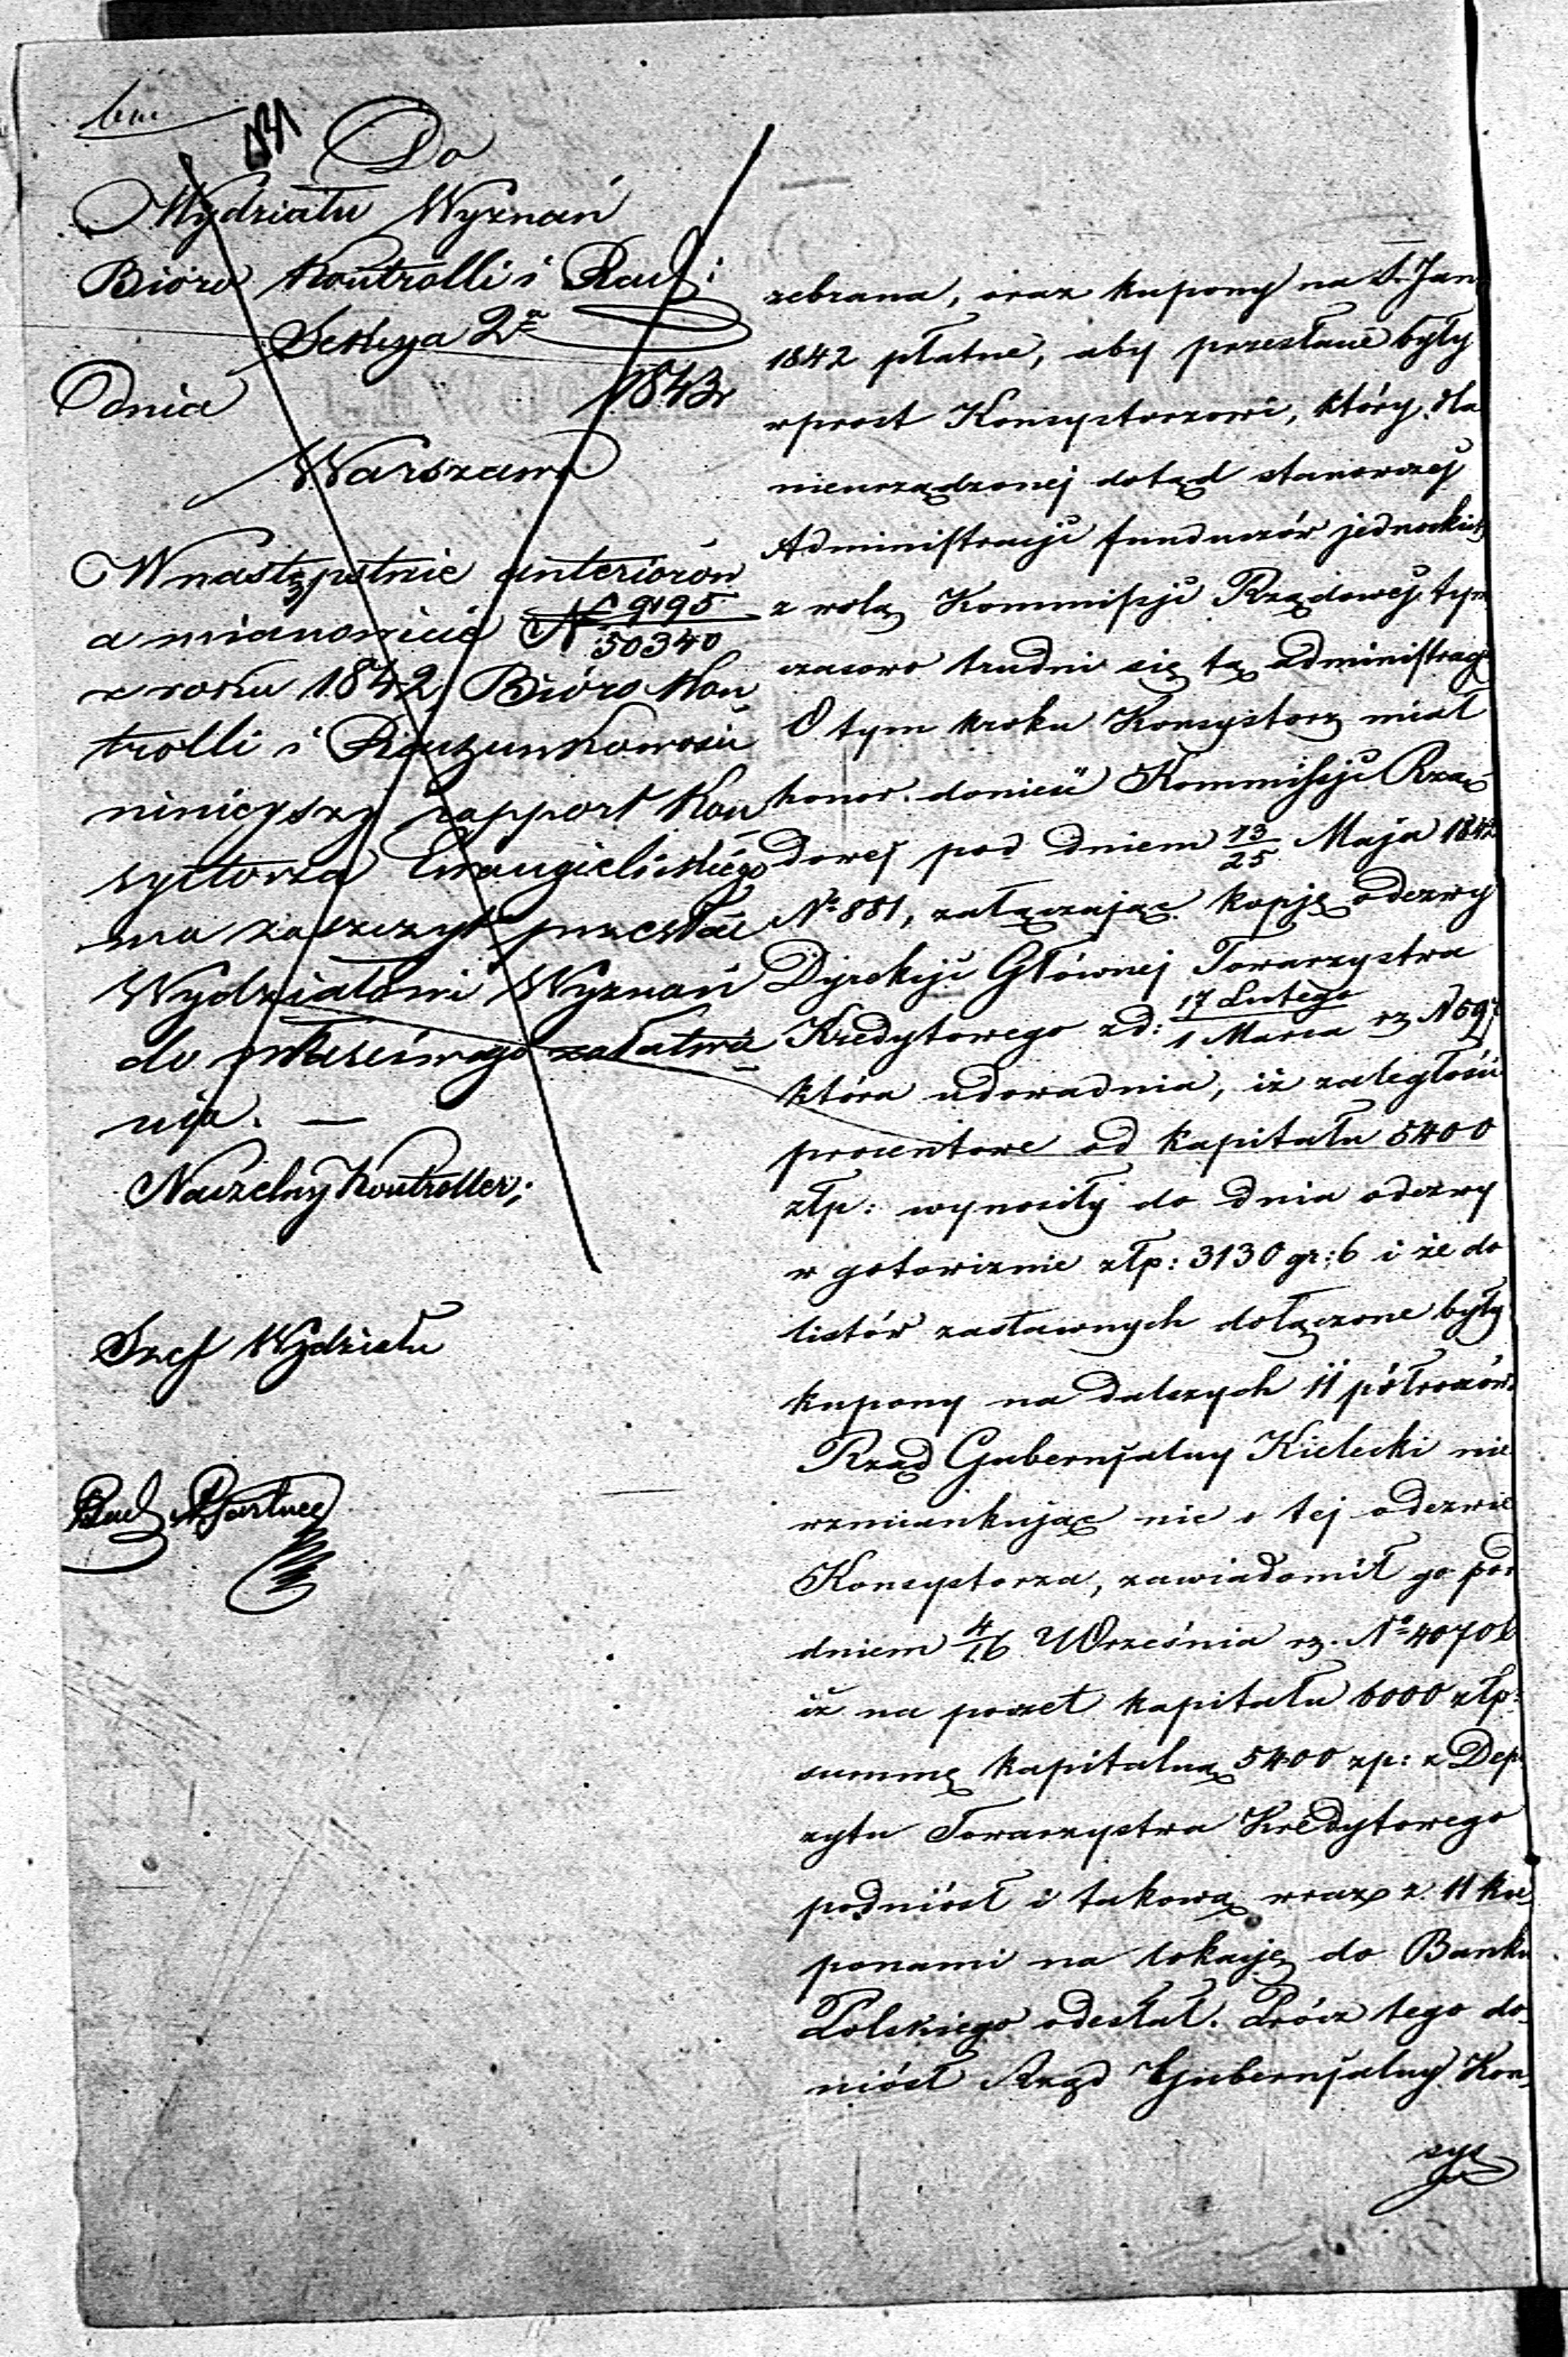 Do
Wydziału Wyznań
Bióro Kontrolli i Rach:
Sekcya 2ª
Dnia 1843r
Warszawa
W następstwie anteriorów
a mianowicie N 9195/50340
z roku 1842, Bióro Kon
trolli i Rachunkowości
ninieyszy rapport Kon
systorza Ewangielickiego
ma zaszczyt przesłać
Wydziałowi Wyznań
do właściwego załatwie
nia. —
Naczelny Kontroller;
Szef Wydziału
zebrana, oraz kupony na S. Jan
1842 płatne, aby przesłane były
wprost Konsystorzowi, który dla
nieurządzonej dotąd stanowczej
Administracji funduszów jednockich
z wolą Kommissji Rządowej tym
czasowo trudni się tą administracją
O tym kroku Konsystorz miał
honor donieść Kommissji Rzą
dowej pod dniem 13/25 Maja 1842
Nº 881, załączając kopję odezwy
Dyrekcji Głównej Towarzystwa
Kredytowego z d: 17 Lutego/1 Marca rz N 697
która udowadnia, iż zaległości
procentowe od kapitału 5400
złp: wynosiły do dnia odezwy
w gotowiznie złp: 3130 gr: 6 i że do
listów zastawnych dołączone były
kupony na dalszych 11 półroczów.
Rząd Gubernjalny Kielecki nie
wzmiankując nic o tej odezwie
Konsystorza, zawiadomił go pod
dniem 4/16 Września rz. Nº 40702
iż na poczet kapitału 6000 złp:
summę kapitalną 5400 zp: z Depo
zytu Towarzystwa Kredytowego
podniósł i takową wraz z 11 ku
ponami na lokacje do Banku
Polskiego odesłał. Prócz tego do
niósł Rząd Gubernjalny Kon
sys